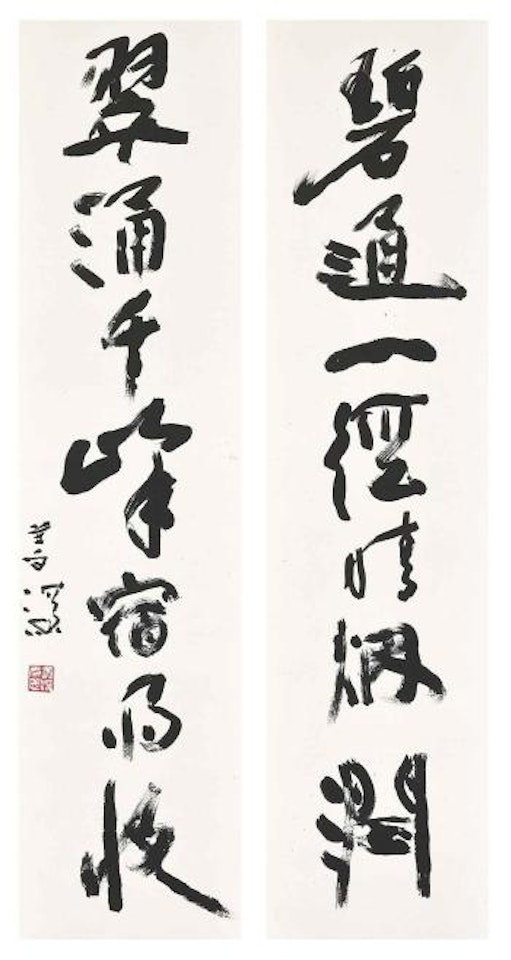 碧通一徑晴烟潤
翠涌千峰宿雨收